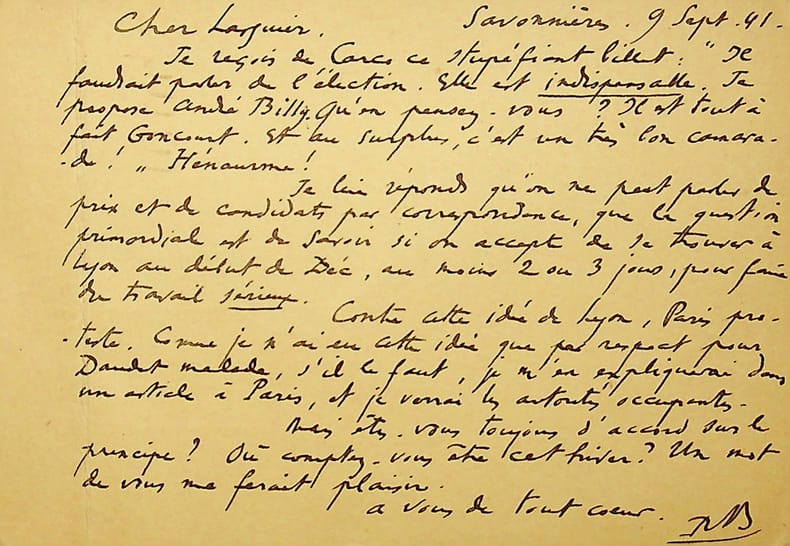 Cher Larguier. Savonnières. 9 Sept. 41.
Je reçois de Carco ce stupéfiant billet : "Il
faudrait parler de l'élection. Elle est indispensable. Je
propose André Billy. Qu'en pensez-vous ? Il est tout à
fait Goncourt. Et au surplus, c'est un très bon camara-
-de ! " Hénaurme !
Je lui réponds qu'on ne peut parler de
prix et de candidats par correspondance, que la question
primordiale est de savoir si on accepte de se trouver à
Lyon au début de Déc, au moins 2 ou 3 jours, pour faire
du travail sérieux.
Contre cette idée de Lyon, Paris pro-
-teste. Comme je n'ai eu cette idée que par respect pour
Daudet malade, s'il le faut, je m'en expliquerai dans
un article à Paris, et je verrai les autorités occupantes.
Mais êtes-vous toujours d'accord sur le
principe ? Où comptez-vous être cet hiver ? Un mot
de vous me ferait plaisir.
a vous de tout coeur.
RB